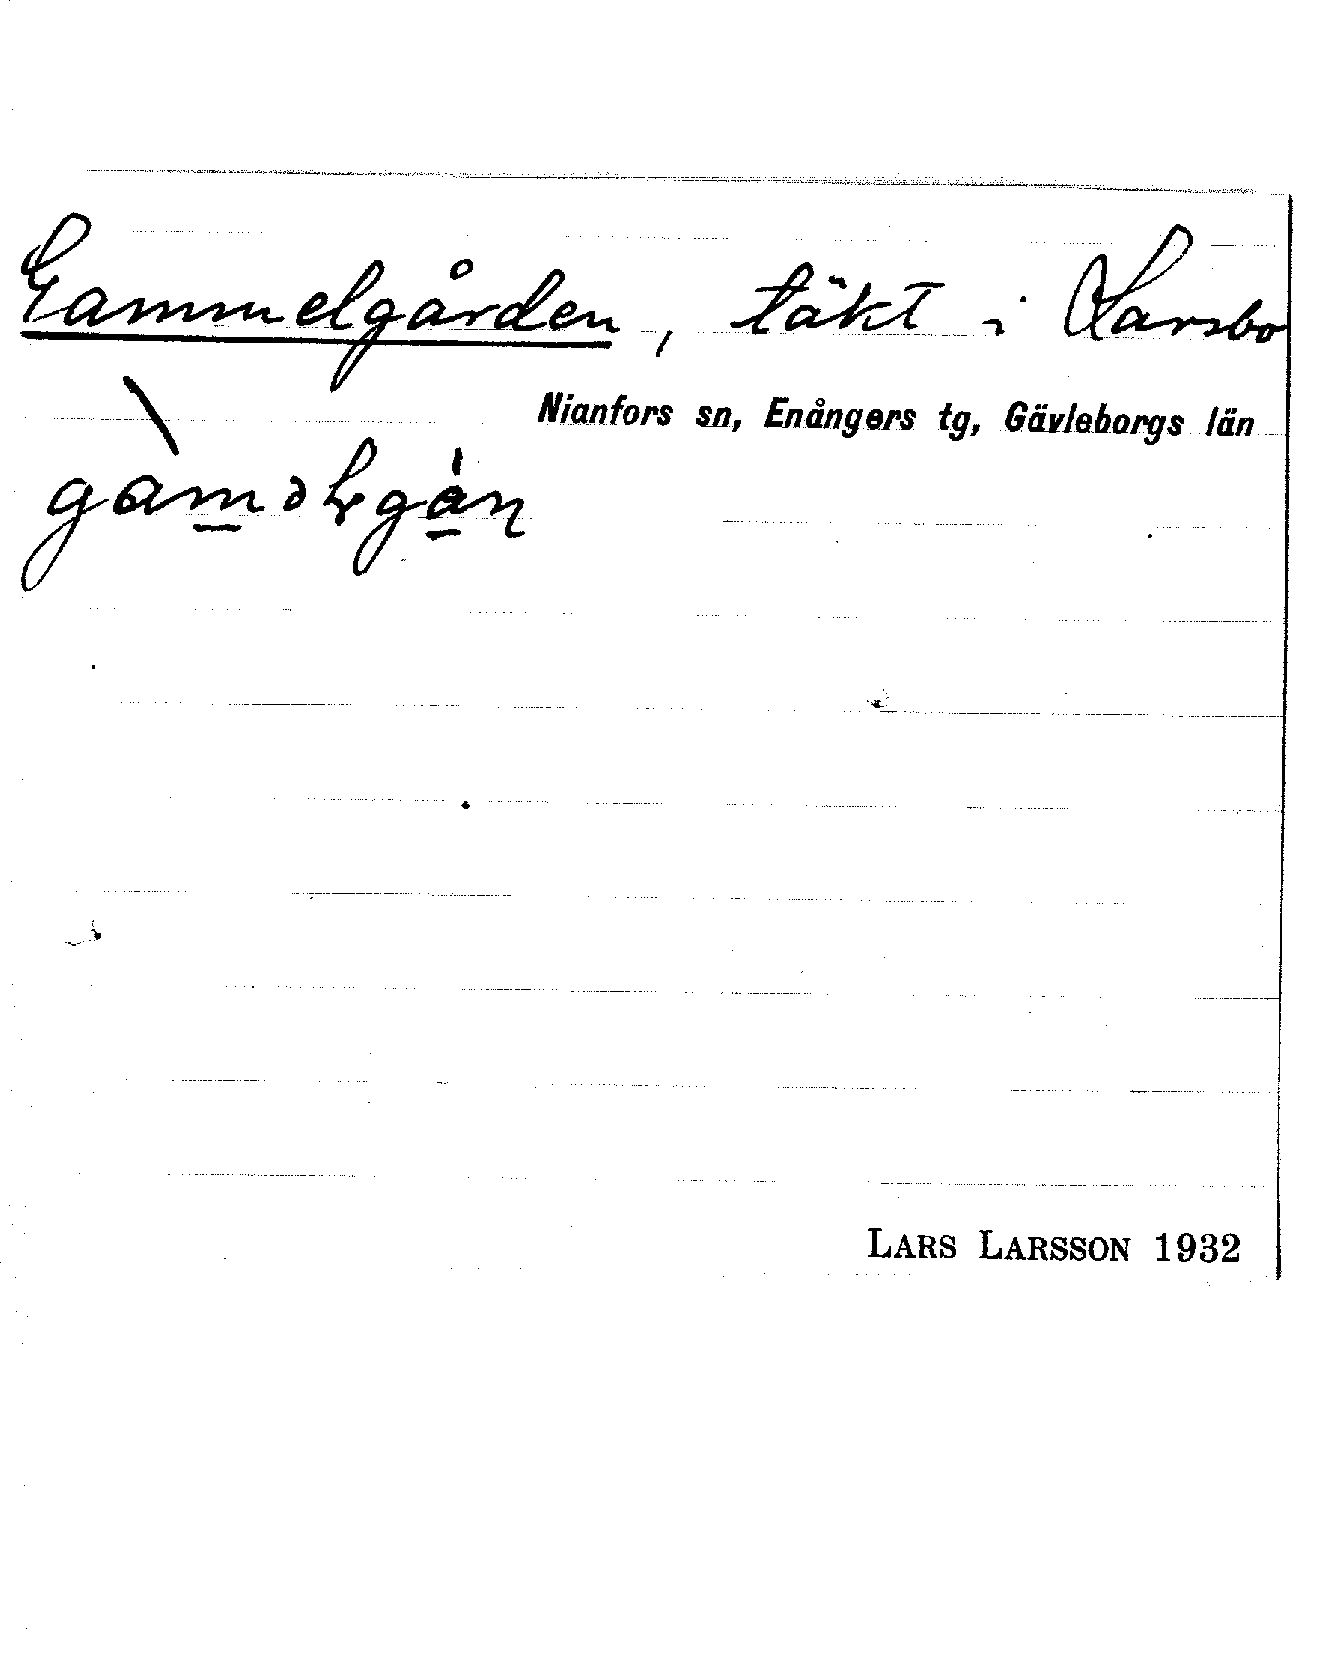 Gammelgården, täkt i Larsbo
Nianfors sn, Enångers tg, Gävleborgs län
LARS LARSSON 1932